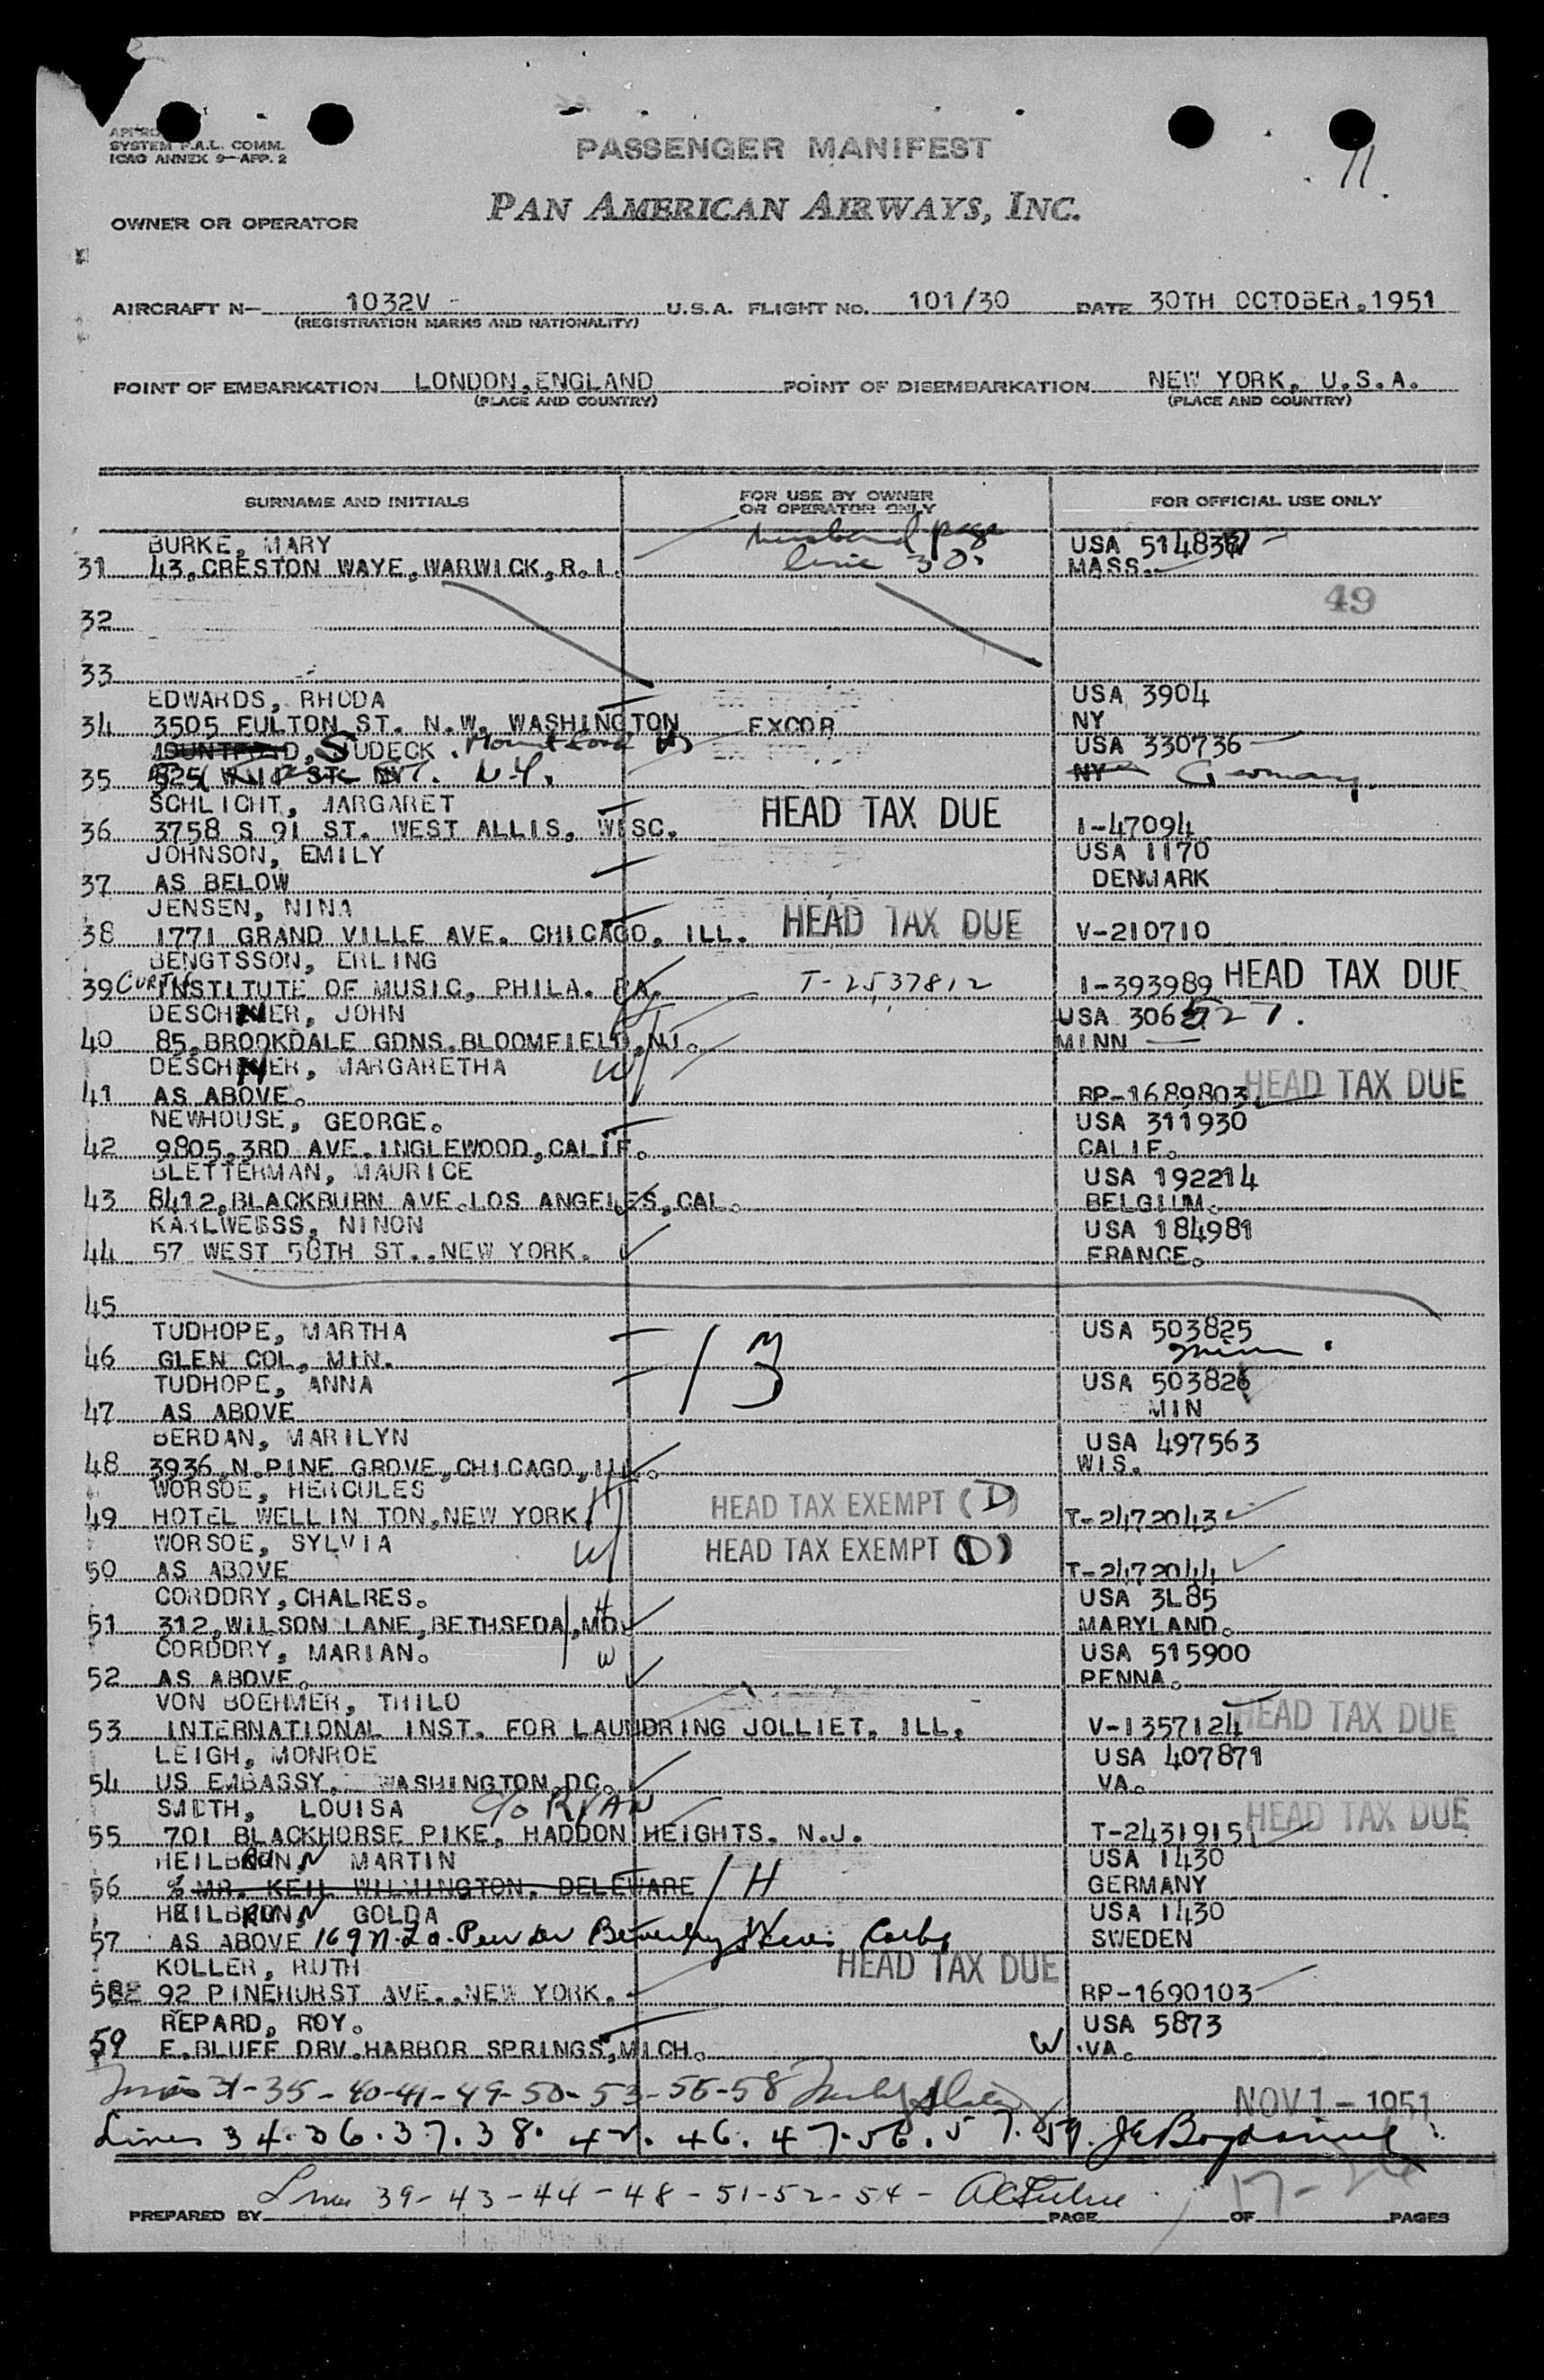 APPRO
SYSTEM F.A.L. COMM.
ICAO ANNEX 9—APP. 2
PASSENGER MANIFEST
11.
OWNER OR OPERATOR
PAN AMERICAN AIRWAYS, INC.
AIRCRAFT N- 1032V - U.S.A. FLIGHT No. 101/30 DATE 30TH OCTOBER.1951
(REGISTRATION MARKS AND NATIONALITY)
POINT OF EMBARKATION LONDON,ENGLAND POINT OF DISEMBARKATION NEW YORK, U.S.A.
(PLACE AND COUNTRY) (PLACE AND COUNTRY)
SURNAME AND INITIALS FOR USE BY OWNER OR OPERATOR ONLY FOR OFFICIAL USE ONLY
BURKE, MARY husband page USA 51483
31 43,CRESTON WAYE,WARWICK,R.I. line 30. MASS.
49
32
33
EDWARDS, RHODA USA 3904
34 3505 FULTON ST. N.W. WASHINGTON EXCOR NY
SUDECK. Mountford USA 330736
35 ST. N.Y. NY Germany
SCHLICHT, MARGARET HEAD TAX DUE
36 3758 S 91 ST. WEST ALLIS, WISC. I-47094
JOHNSON, EMILY USA 1170
37 AS BELOW DENMARK
JENSEN, NINA HEAD TAX DUE
38 1771 GRAND VILLE AVE. CHICAGO, ILL. V-210710
BENGTSSON, ERLING
39 CURTIS INSTITUTE OF MUSIC, PHILA. PA. T-2537812 I-393989 HEAD TAX DUE
DESCHNER, JOHN USA 306527.
40 85,BROOKDALE GDNS.BLOOMFIELD,NJ. MINN
DESCHNER, MARGARETHA W
41 AS ABOVE. RP-1689803 HEAD TAX DUE
NEWHOUSE, GEORGE. USA 311930
42 9805,3RD AVE.INGLEWOOD,CALIF. CALIF.
BLETTERMAN, MAURICE USA 192214
43 8412,BLACKBURN AVE.LOS ANGELES,CAL. BELGIUM.
KARLWEISS, NINON USA 184981
44 57 WEST 58TH ST..NEW YORK. FRANCE.
45
TUDHOPE, MARTHA USA 503825
46 GLEN COL, MIN. 13 Minn.
TUDHOPE, ANNA USA 503826
47 AS ABOVE MIN
BERDAN, MARILYN USA 497563
48 3936,N.PINE GROVE,CHICAGO,ILL. WIS.
WORSOE, HERCULES H HEAD TAX EXEMPT (D)
49 HOTEL WELLIN TON,NEW YORK. T-2472043
WORSOE, SYLVIA W HEAD TAX EXEMPT (D)
50 AS ABOVE T-2472044
CORDDRY,CHALRES. H USA 3L85
51 312,WILSON LANE,BETHSEDA,MD. MARYLAND.
CORDDRY, MARIAN. W USA 515900
52 AS ABOVE. PENNA.
VON BOEHMER, THILO HEAD TAX DUE
53 INTERNATIONAL INST. FOR LAUNDRING JOLLIET, ILL. V-1357124
LEIGH, MONROE USA 407871
54 US EMBASSY, WASHINGTON DC. VA.
SMITH, LOUISA C/O RYAN HEAD TAX DUE
55 701 BLACKHORSE PIKE, HADDON HEIGHTS, N.J. T-2431915
HEILBRUNN MARTIN USA 1430
56 % MR. KEIL WILMINGTON. DELEWARE H GERMANY
HEILBRUNN GOLDA USA 1430
57 AS ABOVE 169 N. La Peer Dr Beverly W SWEDEN
KOLLER, RUTH HEAD TAX DUE
58 92 PINEHURST AVE..NEW YORK. RP-1690103
REPARD, ROY. USA 5873
59 E.BLUFF DRV.HARBOR SPRINGS,MICH. W VA.
31-35-40-41-49-50-53-55-58 NOV 1 - 1951
Lines 34.36.37.38. 42. 46. 47.56.57.59.
Lines 39-43-44-48-51-52-54-
PREPARED BY PAGE OF PAGES